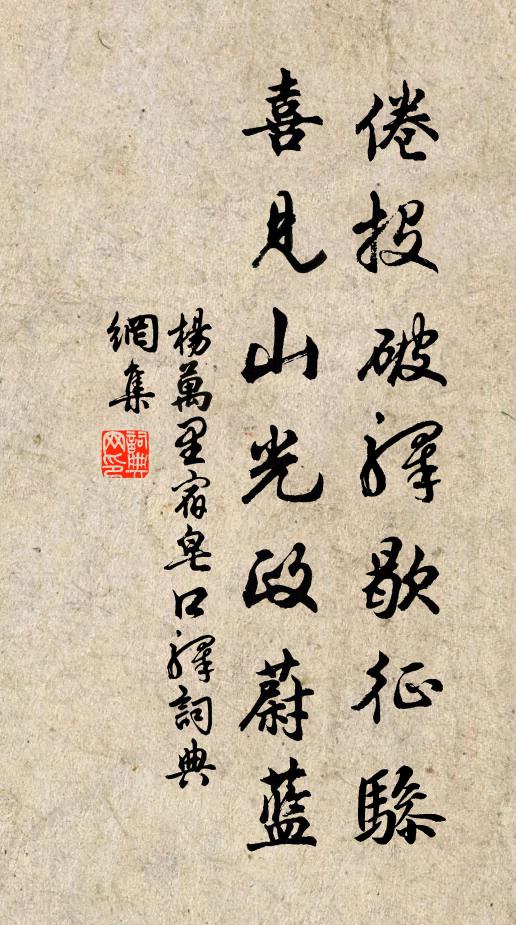 倦投破驛歇征驂
喜見山光政蔚藍
楊萬里宿皂口驛詞典
網集
詞典网印